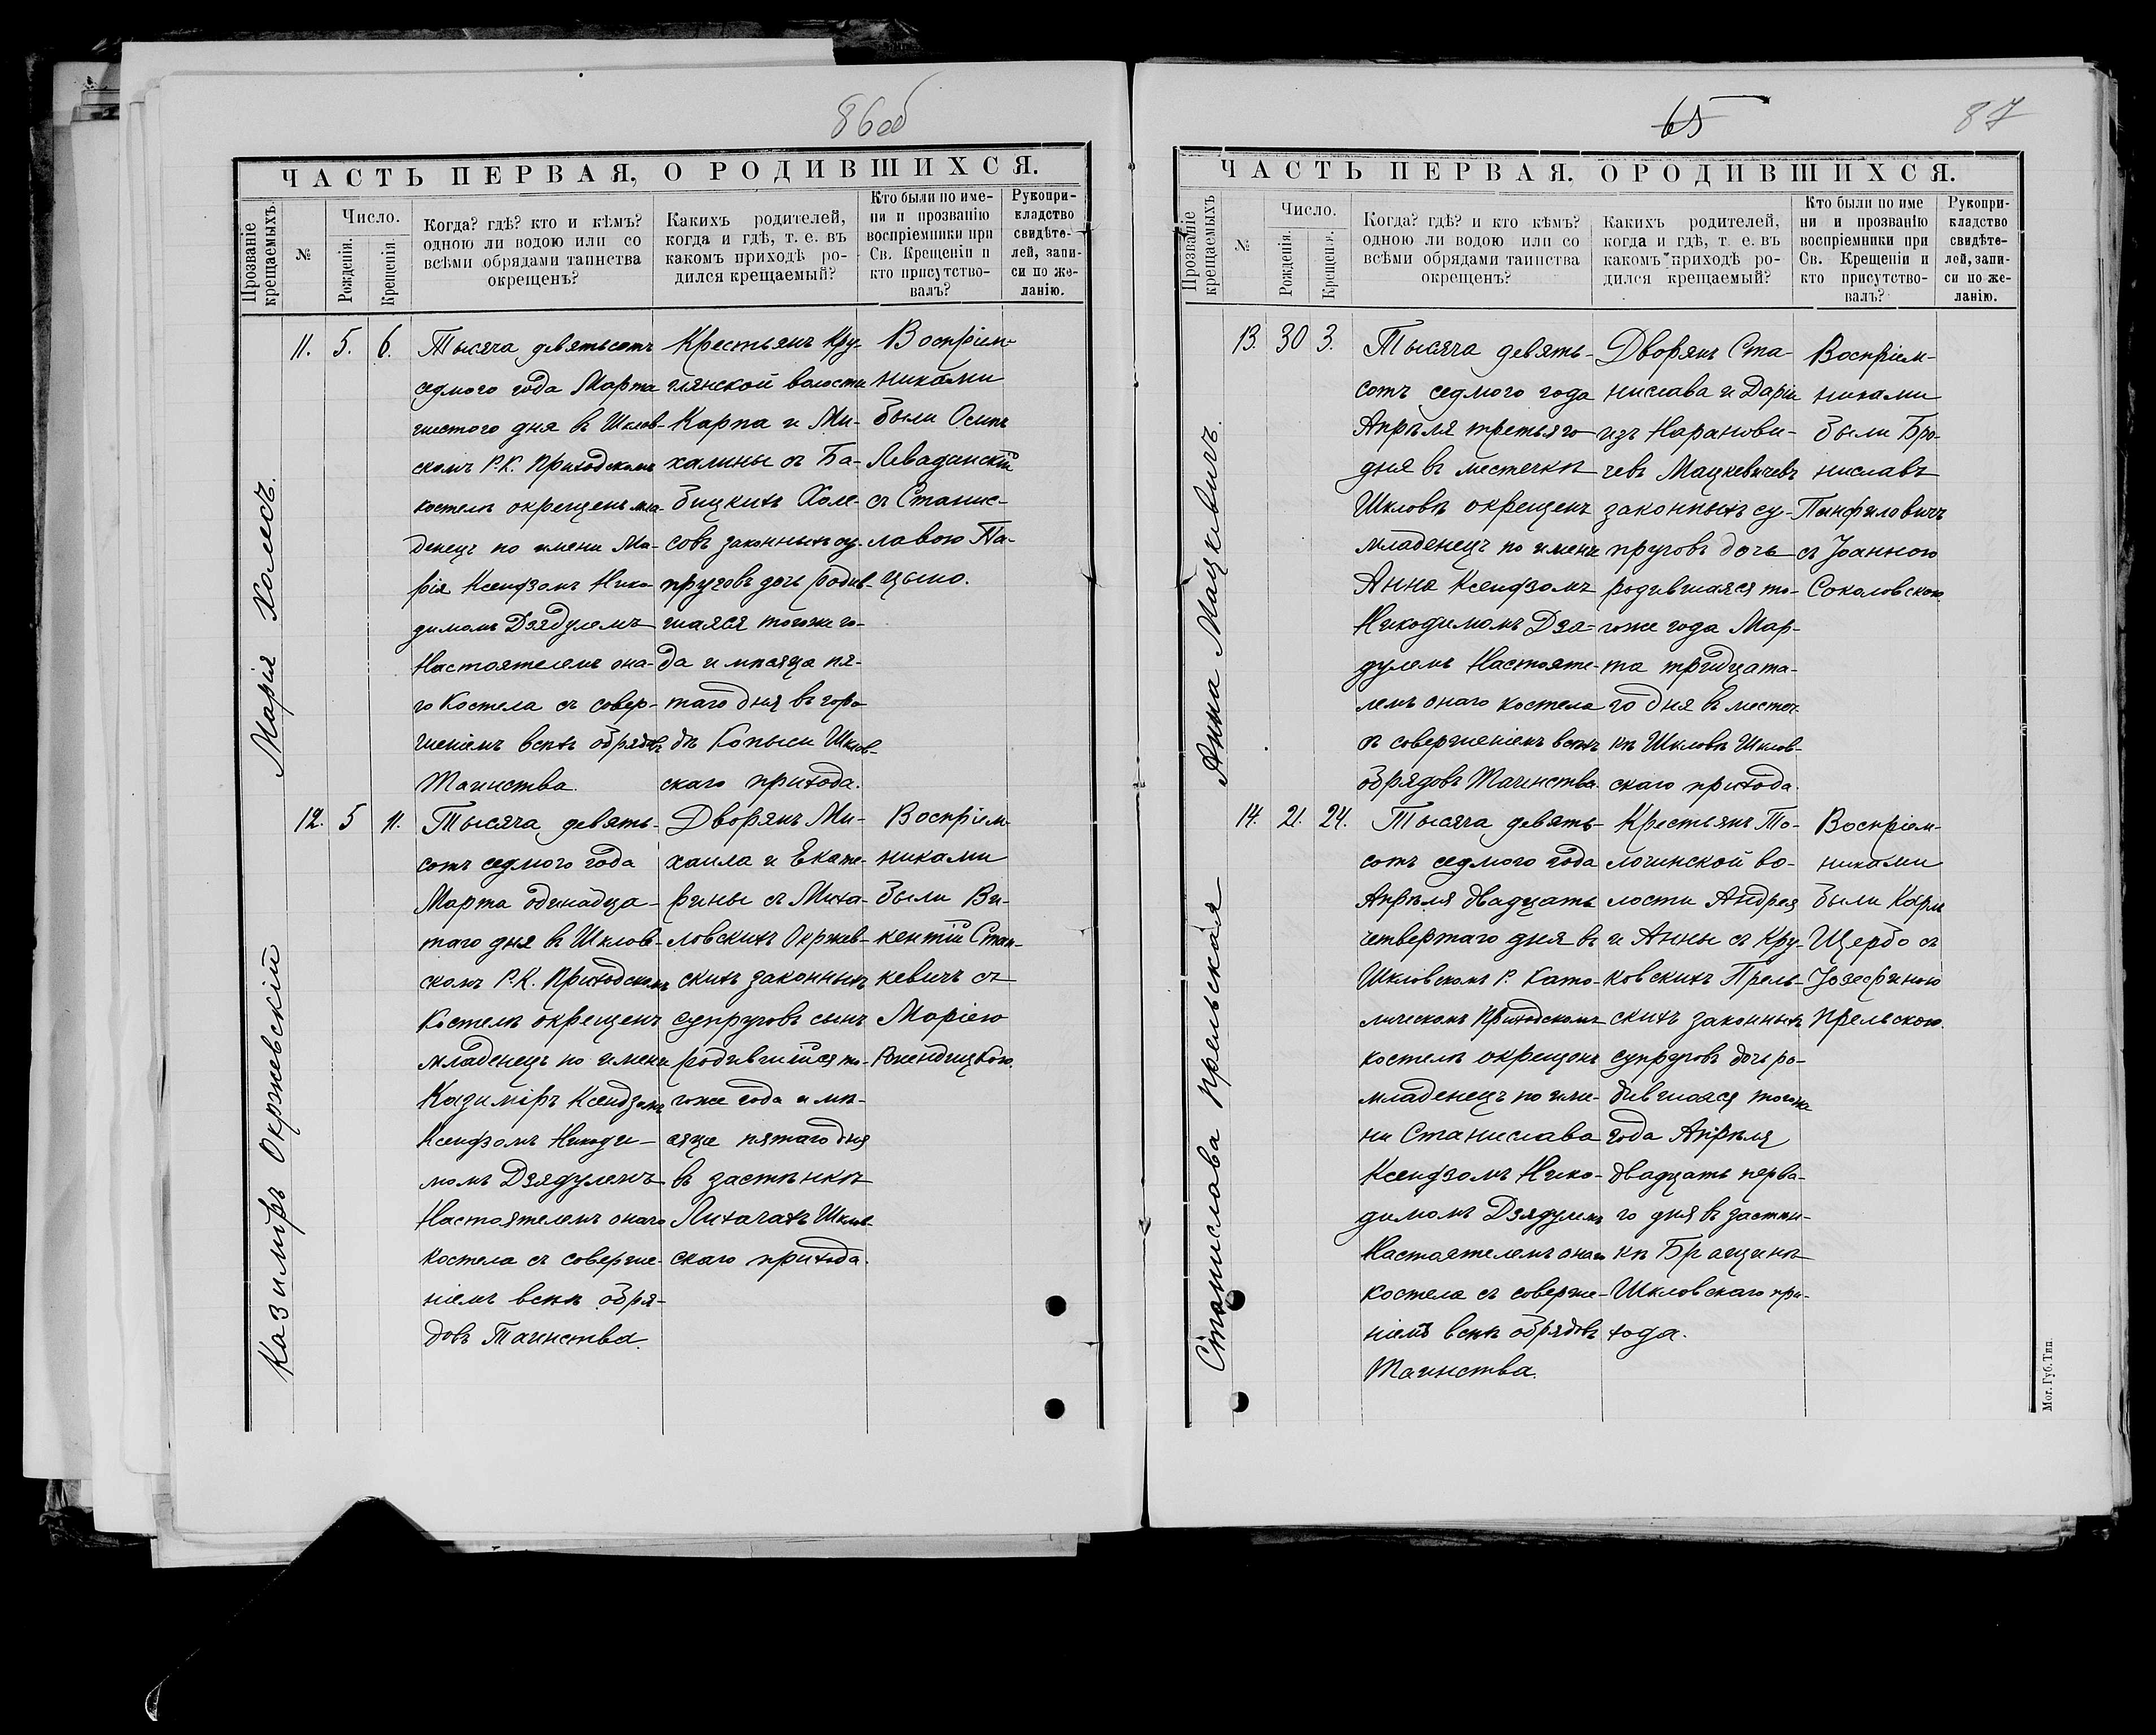 86об
ЧАСТЬ ПЕРВАЯ, О РОДИВШИХСЯ.
Прозваніе крещаемыхъ.
№
Число.
Рожденія.
Крещенія.
Когда? гдѣ? кто и кѣмъ?
одною ли водою или со
всѣми обрядами таинства
окрещенъ?
Какихъ родителей,
когда и гдѣ, т. е. въ
какомъ приходѣ ро-
дился крещаемый?
Кто были по име-
ни и прозванію
воспріемники при
Св. Крещеніи и
кто присутство-
валъ?
Рукопри-
кладство
свидѣте-
лей, запи-
си по же-
ланію.
Марія Холесъ.
11. 5. 6.
Тысяча девятьсотъ
седмого года Марта
шестого дня въ Шклов-
скомъ Р. К. Приходскомъ
костелѣ окрещенъ мла-
денецъ по имени Ма-
рія Ксендзомъ Нико-
димомъ Дзядулемъ
Настоятелемъ она-
го Костела съ совер-
шеніемъ всѣхъ обрядовъ
Таинства.
Крестьянъ Кру-
глянской волости
Карпа и Ми-
халины съ Ба-
бицкихъ Холе-
совъ законныхъ су-
пруговъ дочь родив-
шаяся тогоже го-
да и мѣсяца пя-
таго дня въ горо-
дѣ Копыси Шклов-
скаго прихода.
Воспріем-
никами
были Осипъ
Левадинскій
съ Станис-
лавою Па-
цыно.
Казиміръ Окржевскій
12. 5 11.
Тысяча девять-
сотъ седмого года
Марта одинадца-
таго дня въ Шклов-
скомъ Р. К. Приходскомъ
Костелѣ окрещенъ
младенецъ по имени
Казиміръ Ксендзомъ
Ксендзомъ Никоди-
момъ Дзядулемъ
Настоятелемъ онаго
костела съ соверше-
ніемъ всѣхъ обря-
довъ Таинства.
Дворянъ Ми-
хаила и Екате-
рины съ Миха-
ловскихъ Окржев-
скихъ законныхъ
супруговъ сынъ
родившійся то-
гоже года и мѣ-
сяца пятаго дня
въ застѣнкѣ
Лихачахъ Шклов-
скаго прихода.
Воспріем-
никами
были Ви-
кентій Стан-
кевичъ съ
Маріею
65
87
ЧАСТЬ ПЕРВАЯ. О РОДИВШИХСЯ.
Прозваніе крещаемыхъ
№
Число.
Рожденія.
Крещенія.
Когда? гдѣ? и кто кѣмъ?
одною ли водою или со
всѣми обрядами таинства
окрещенъ?
Какихъ родителей,
когда и гдѣ, т. е. въ
какомъ приходѣ ро-
дился крещаемый?
Кто были по име
ни и прозванію
воспріемники при
Св. Крещеніи и
кто присутство-
валъ?
Рукопри-
кладство
свидѣте-
лей, запи-
си по же-
ланію.
Анна Мацкевичъ.
13. 30 3.
Тысяча девять-
сотъ седмого года
Апрѣля третьяго
дня въ местечкѣ
Шкловѣ окрещенъ
младенецъ по имени
Анна Ксендзомъ
Никодимомъ Дзя-
дулемъ Настояте-
лемъ онаго костела
съ совершеніемъ всѣхъ
обрядовъ Таинства.
Дворянъ Ста-
нислава и Даріи
изъ Нарановi-
чевъ Мацкевичевъ
законныхъ су-
пруговъ дочь
родившаяся то-
гоже года Мар-
та тридцата-
го дня въ местеч-
кѣ Шкловѣ Шклов-
скаго прихода.
Воспріем-
никами
были Бро-
ниславъ
Панфиловичъ
съ Іоанною
Соколовскою.
Станислава Прельская
14. 21. 24.
Тысяча девять-
сотъ седмого года
Апрѣля двадцать
четвертаго дня въ
Шкловскомъ Р. Като-
лическомъ Приходскомъ
костелѣ окрещенъ
младенецъ по име-
ни Станислава
Ксендзомъ Нико-
димомъ Дзядулемъ
Настоятелемъ онаго
костела съ соверше-
ніемъ всѣхъ обрядовъ
Таинства.
Крестьянъ То-
лочинской во-
лости Андрея
и Анны съ Кру-
ковскихъ Прель-
скихъ законныхъ
супруговъ дочь ро-
дившаяся тогоже
года Апрѣля
двадцать перва-
го дня въ застѣн-
кѣ Бращинѣ
Шкловскаго при-
хода.
Воспріем-
никами
были Карлъ
Щербо съ
Іозефиною
Прельскою.
Мог. Губ. Тип.